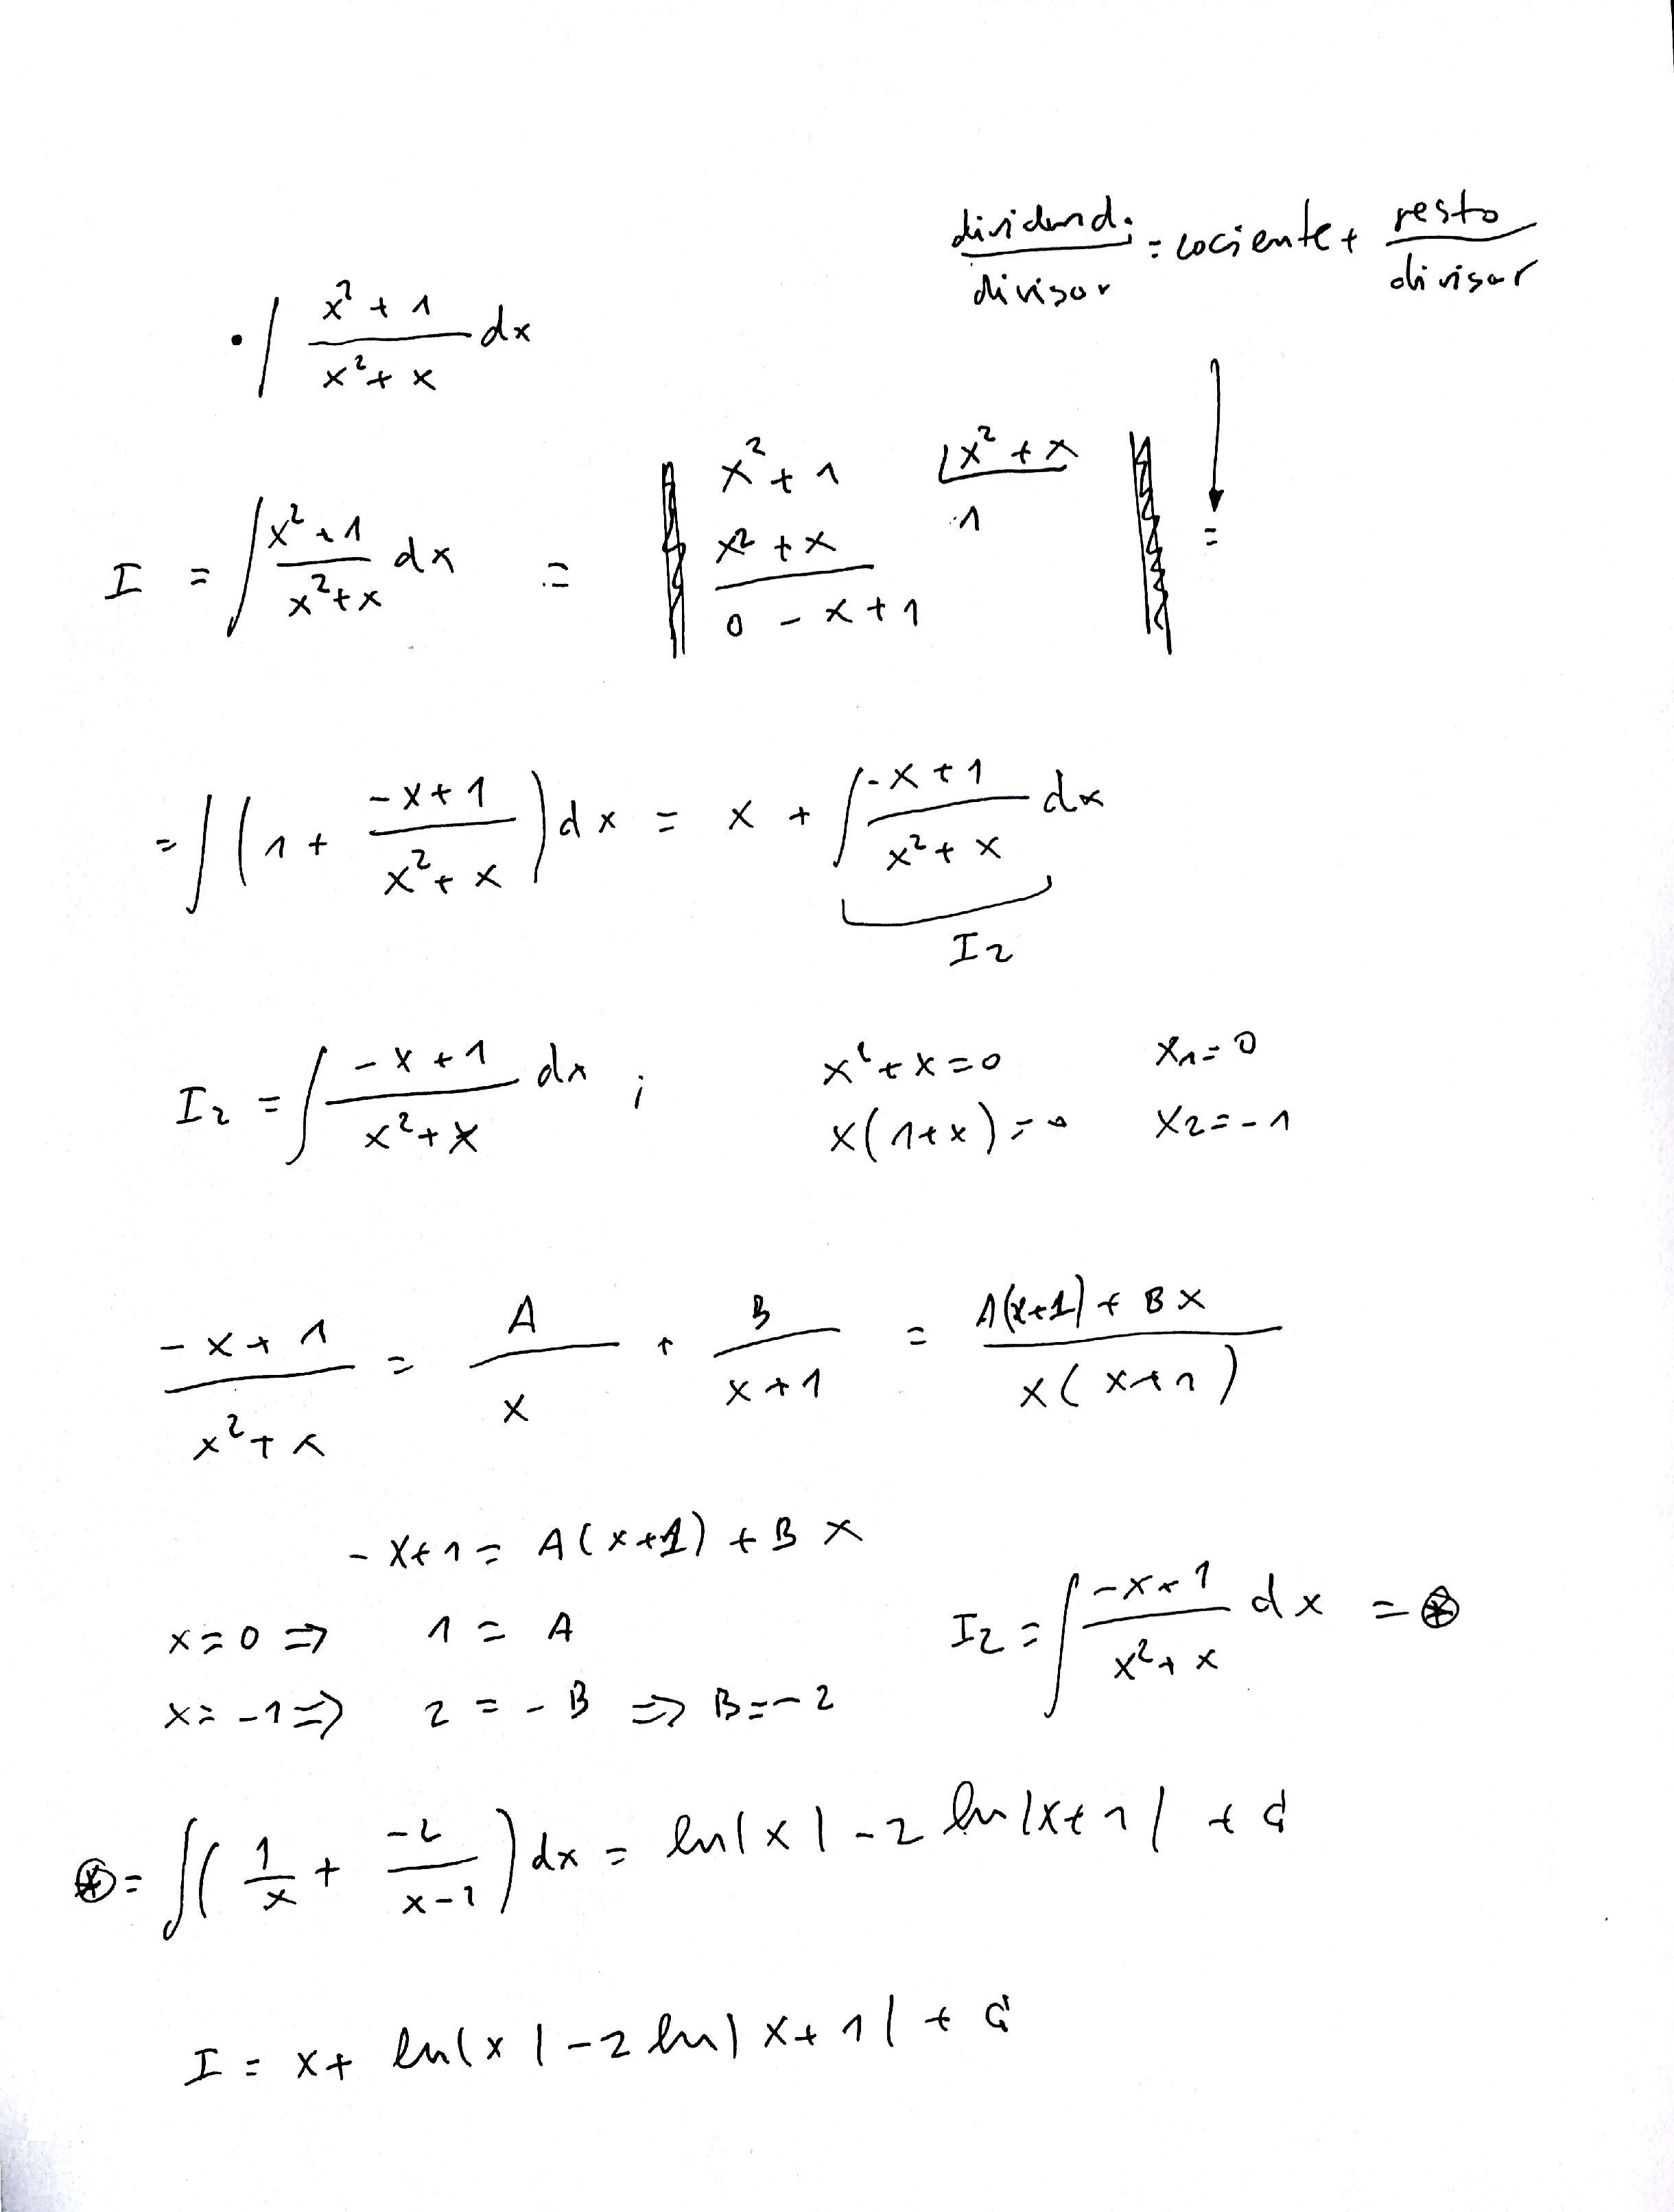 dividendo/divisor = cociente + resto/divisor
• ∫ (x² + 1)/(x² + x) dx
I = ∫ (x² + 1)/(x² + x) dx = || x² + 1 |x² + x || =
x² + x 1
0 - x + 1
= ∫ (1 + (-x + 1)/(x² + x)) dx = x + ∫ (-x + 1)/(x² + x) dx
I₂
I₂ = ∫ (-x + 1)/(x² + x) dx ; x² + x = 0 x₁ = 0
x(1 + x) = 0 x₂ = -1
(-x + 1)/(x² + x) = A/x + B/(x + 1) = (A(x+1) + Bx)/(x(x+1))
-x + 1 = A(x+1) + Bx
x = 0 ⇒ 1 = A
I₂ = ∫ (-x + 1)/(x² + x) dx = ⊛
x = -1 ⇒ 2 = -B ⇒ B = -2
⊛ = ∫ (1/x + -2/(x-1)) dx = ln|x| - 2 ln|x+1| + C
I = x + ln|x| - 2 ln|x+1| + C